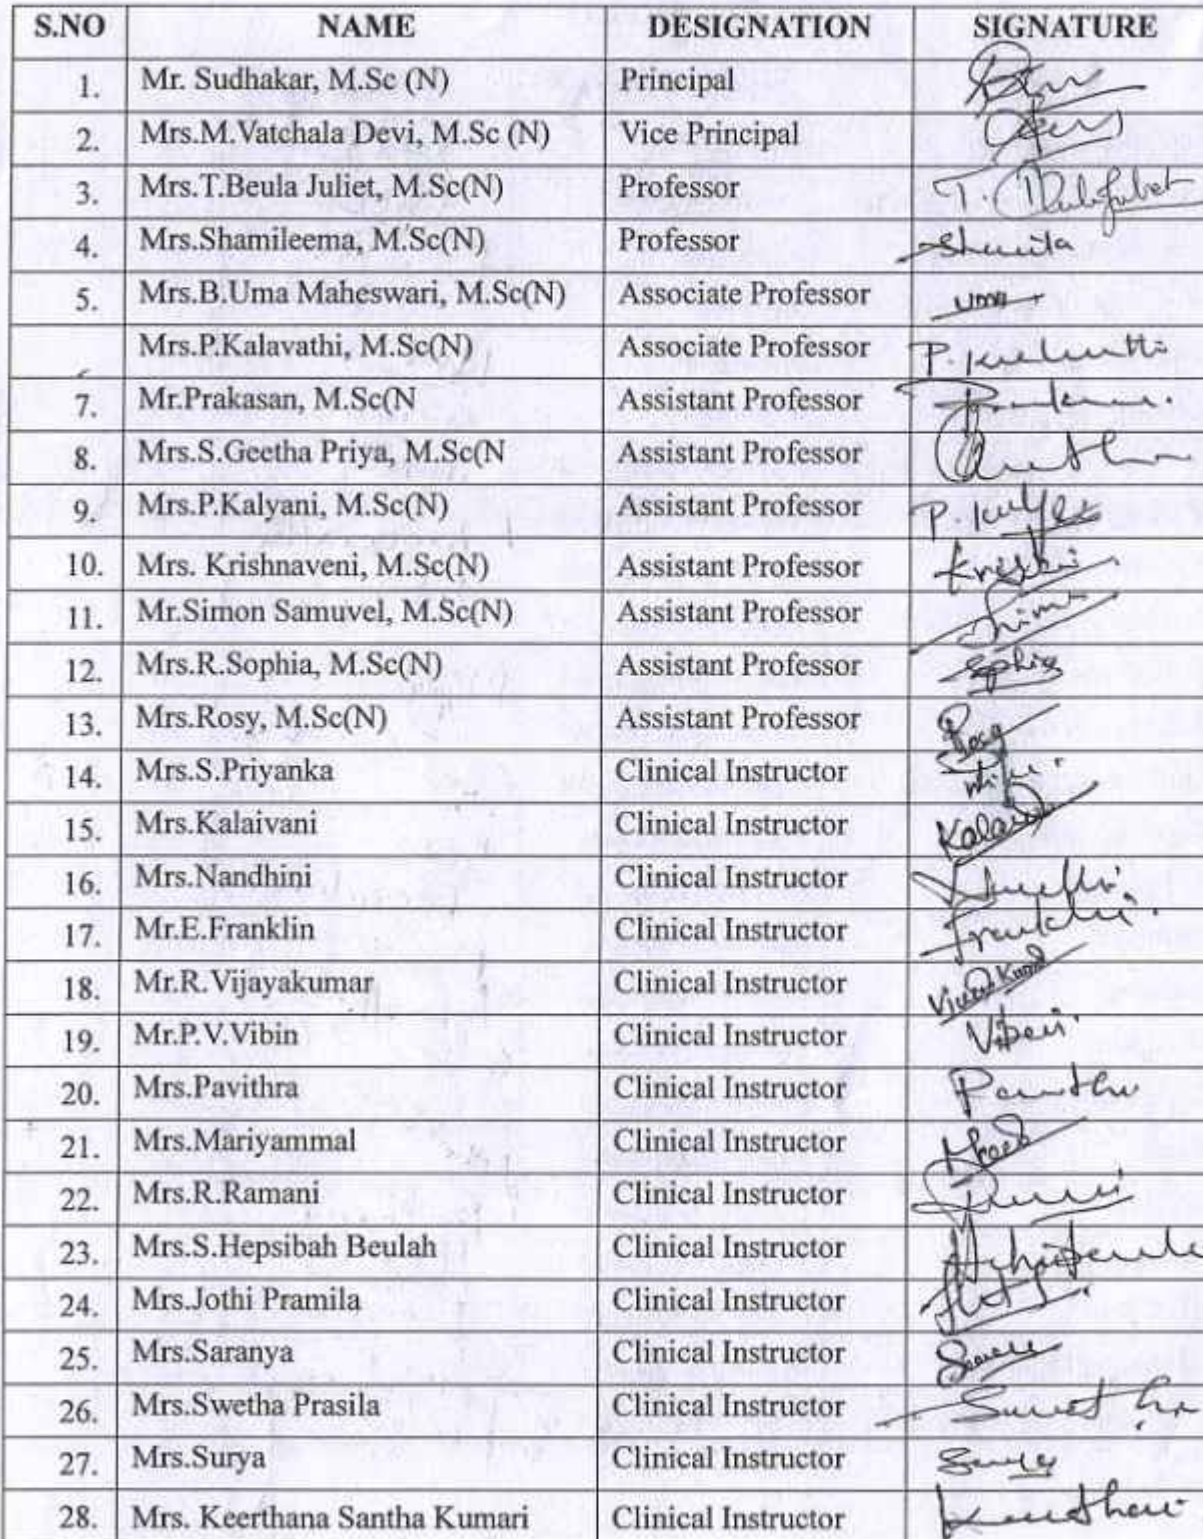 S.NO NAME DESIGNATION SIGNATURE
1. Mr. Sudhakar, M.Sc (N) Principal
2. Mrs.M.Vatchala Devi, M.Sc (N) Vice Principal
3. Mrs.T.Beula Juliet, M.Sc(N) Professor T.
4. Mrs.Shamileema, M.Sc(N) Professor
5. Mrs.B.Uma Maheswari, M.Sc(N) Associate Professor uma
Mrs.P.Kalavathi, M.Sc(N) Associate Professor P.
7. Mr.Prakasan, M.Sc(N Assistant Professor
8. Mrs.S.Geetha Priya, M.Sc(N Assistant Professor
9. Mrs.P.Kalyani, M.Sc(N) Assistant Professor P.
10. Mrs. Krishnaveni, M.Sc(N) Assistant Professor
11. Mr.Simon Samuvel, M.Sc(N) Assistant Professor
12. Mrs.R.Sophia, M.Sc(N) Assistant Professor
13. Mrs.Rosy, M.Sc(N) Assistant Professor
14. Mrs.S.Priyanka Clinical Instructor
15. Mrs.Kalaivani Clinical Instructor
16. Mrs.Nandhini Clinical Instructor
17. Mr.E.Franklin Clinical Instructor
18. Mr.R.Vijayakumar Clinical Instructor
19. Mr.P.V.Vibin Clinical Instructor
20. Mrs.Pavithra Clinical Instructor
21. Mrs.Mariyammal Clinical Instructor
22. Mrs.R.Ramani Clinical Instructor
23. Mrs.S.Hepsibah Beulah Clinical Instructor
24. Mrs.Jothi Pramila Clinical Instructor
25. Mrs.Saranya Clinical Instructor
26. Mrs.Swetha Prasila Clinical Instructor
27. Mrs.Surya Clinical Instructor
28. Mrs. Keerthana Santha Kumari Clinical Instructor